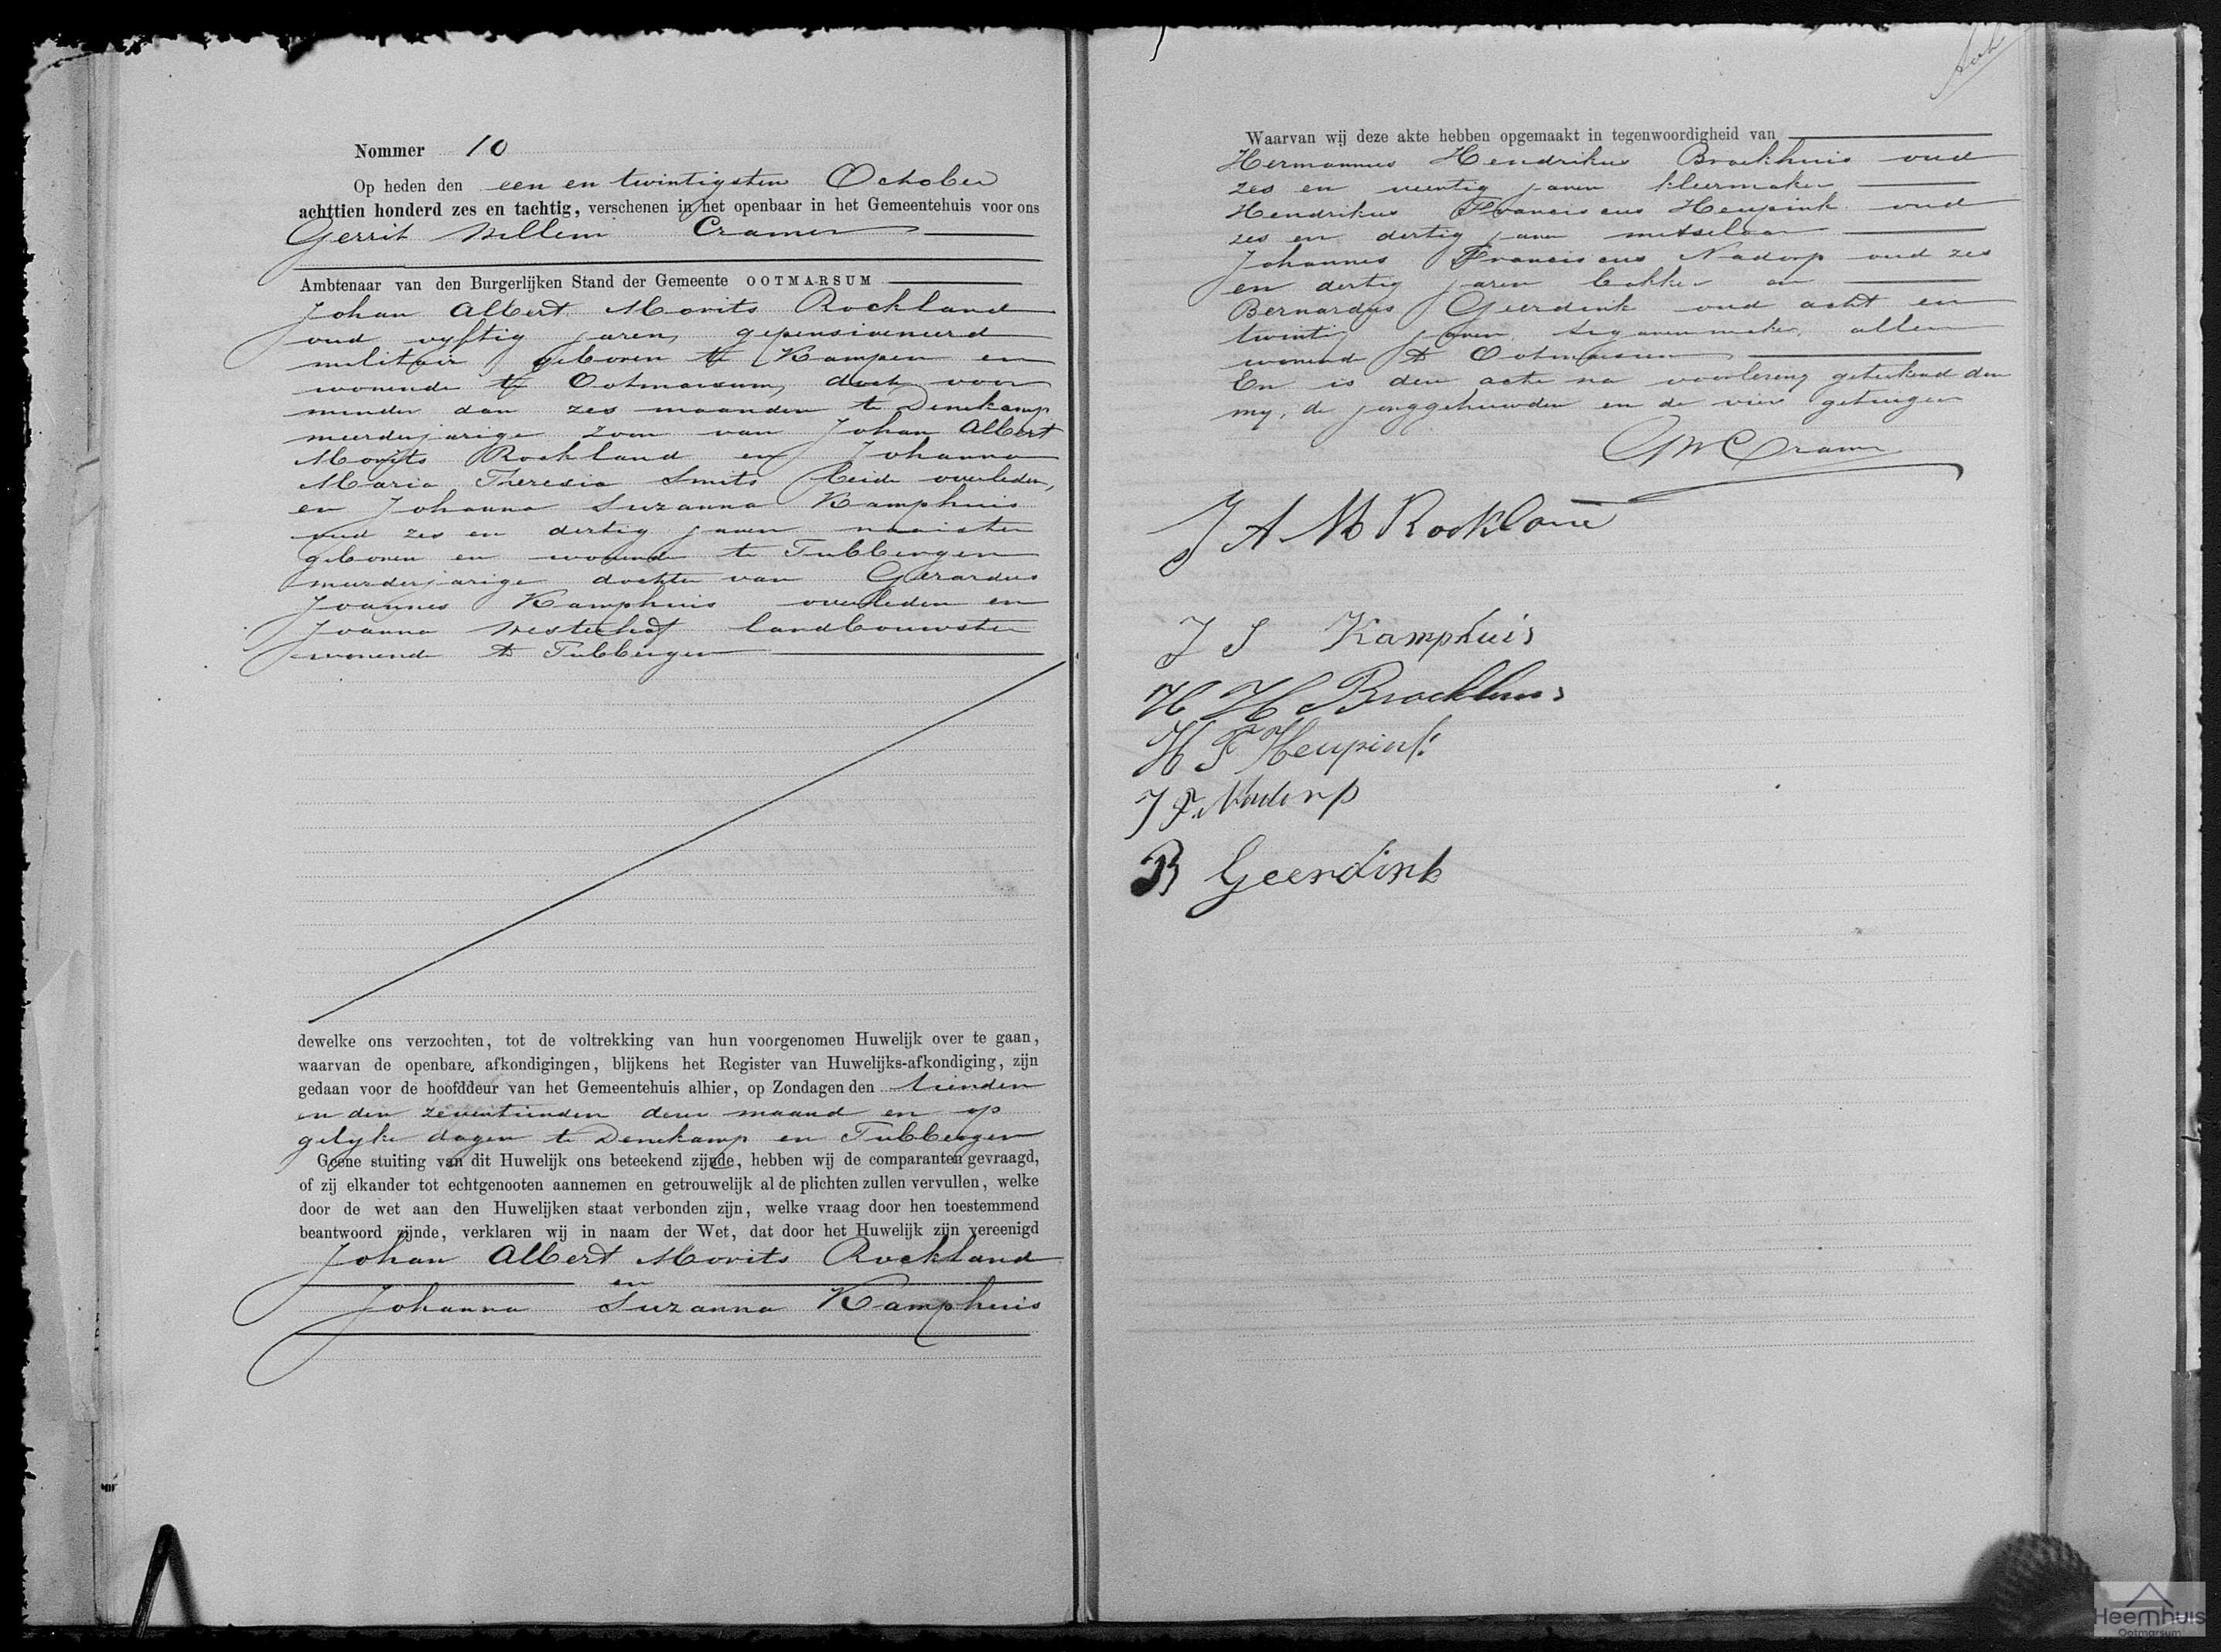 Nommer 10
Op heden den een en twintigsten October
achttien honderd zes en tachtig, verschenen in het openbaar in het Gemeentehuis voor ons
Gerrit Willem Cramer
Ambtenaar van den Burgerlijken Stand der Gemeente OOTMARSUM
Johan Albert Morits Rockland
oud vyftig jaren, gepensioneerd
militair geboren te Kampen en
wonende te Ootmarsum, doch voor
minder dan zes maanden te Denekamp
meerderjarige zoon van Johan Albert
Morits Rockland en Johanna
Maria Theresia Smits beide overleden,
en Johanna Suzanna Kamphuis
oud zes en dertig jaren naaister
geboren en wonende te Tubbergen
meerderjarige dochter van Gerardus
Joannes Kamphuis overleden en
Joanna Westerhof landbouwster
wonende te Tubbergen
dewelke ons verzochten, tot de voltrekking van hun voorgenomen Huwelijk over te gaan,
waarvan de openbare afkondigingen, blijkens het Register van Huwelijks-afkondiging, zijn
gedaan voor de hoofddeur van het Gemeentehuis alhier, op Zondagen den tienden
en den zeventienden dezer maand en op
gelyke dagen te Denekamp en Tubbergen
Geene stuiting van dit Huwelijk ons beteekend zijnde, hebben wij de comparanten gevraagd,
of zij elkander tot echtgenooten aannemen en getrouwelijk al de plichten zullen vervullen, welke
door de wet aan den Huwelijken staat verbonden zijn, welke vraag door hen toestemmend
beantwoord zijnde, verklaren wij in naam der Wet, dat door het Huwelijk zijn vereenigd
Johan Albert Morits Rockland
en
Johanna Suzanna Kamphuis
Waarvan wij deze akte hebben opgemaakt in tegenwoordigheid van
Hermannus Hendrikus Broekhuis oud
zes en veertig jaren kleermaker
Hendrikus Franciscus Heupink oud
zes en dertig jaren metselaar
Johannes Franciscus Nadorp oud zes
en dertig jaren bakker en
Bernardus Geerdink oud acht en
twintig jaren sigarenmaker, allen
wonende te Ootmarsum
En is deze acte na voorlezing geteekend door
my, de jonggehuwden en de vier getuigen
GWCramer
J A M Rockland
J S Kamphuis
H H Broekhuis
H F Heupink
J F Nadorp
B Geerdink
Heemhuis
Ootmarsum